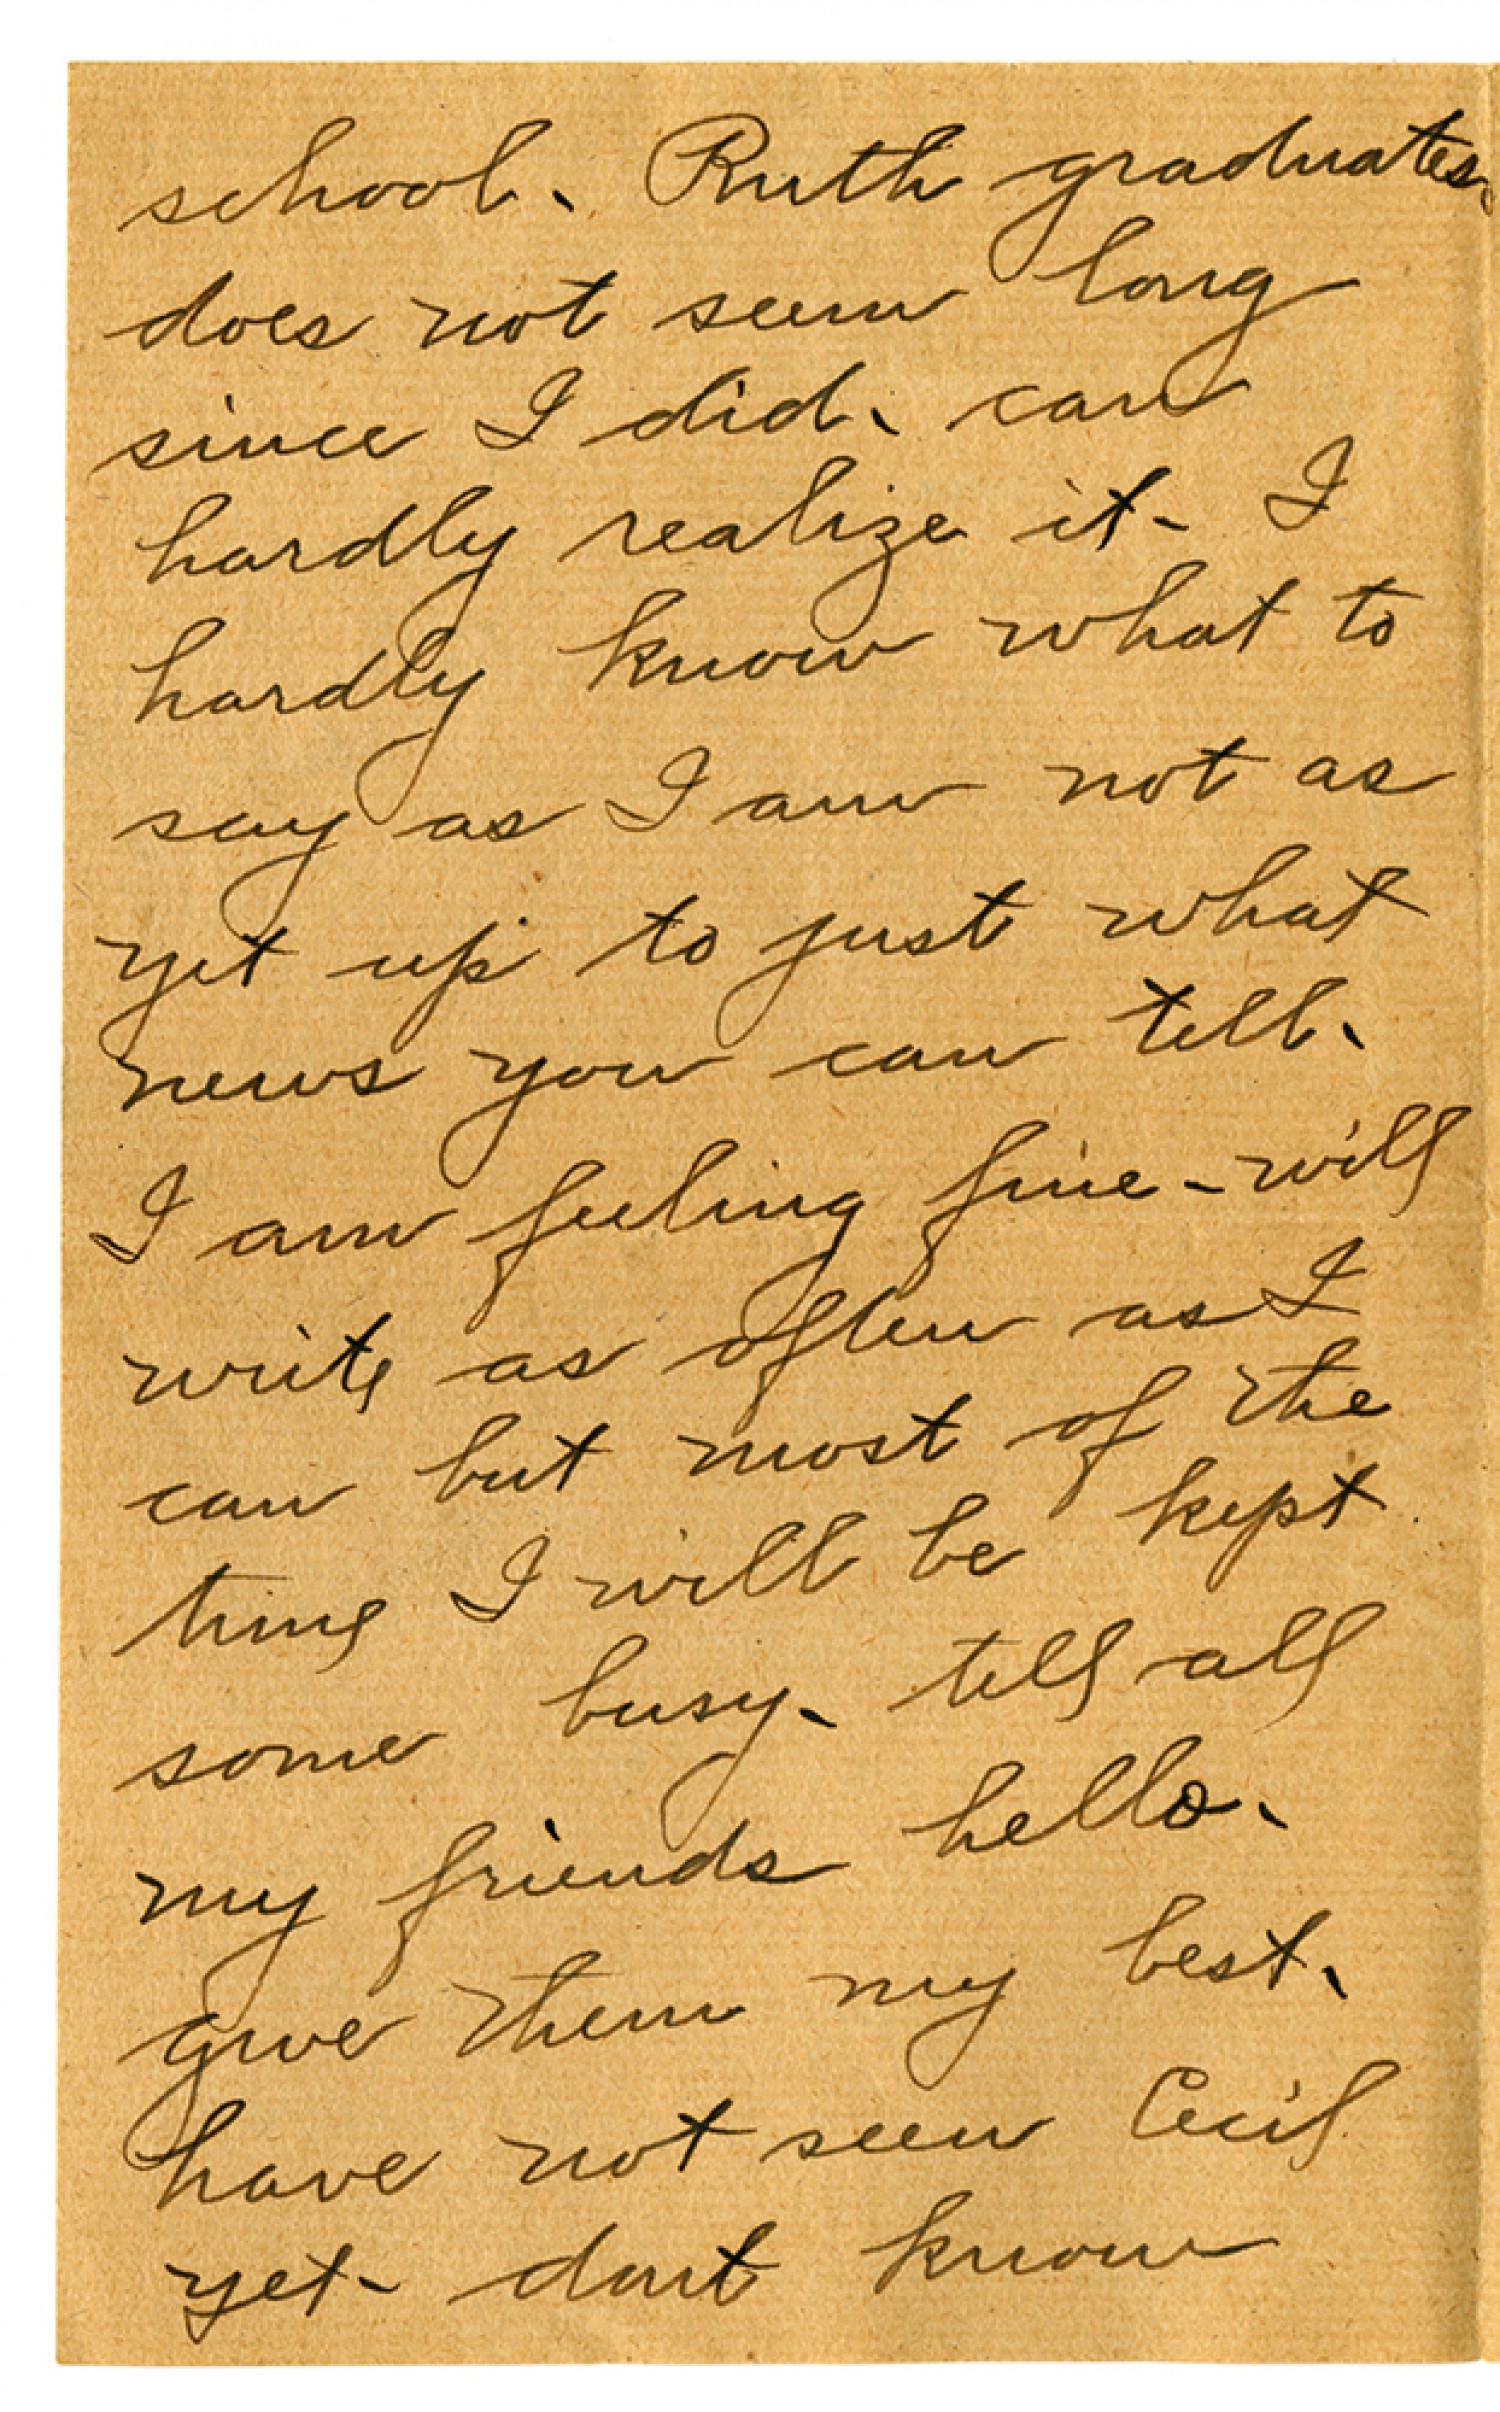 school. Ruth graduates.
does not seem long
since I did. can
hardly realize it - I
hardly know what to
say as I am not as
yet up to just what
news you can tell.
I am feeling fine - will
write as often as I
can but most of the
time I will be kept
some busy. tell all
my friends hello.
give them my best.
have not seen Cecil
yet - dont know